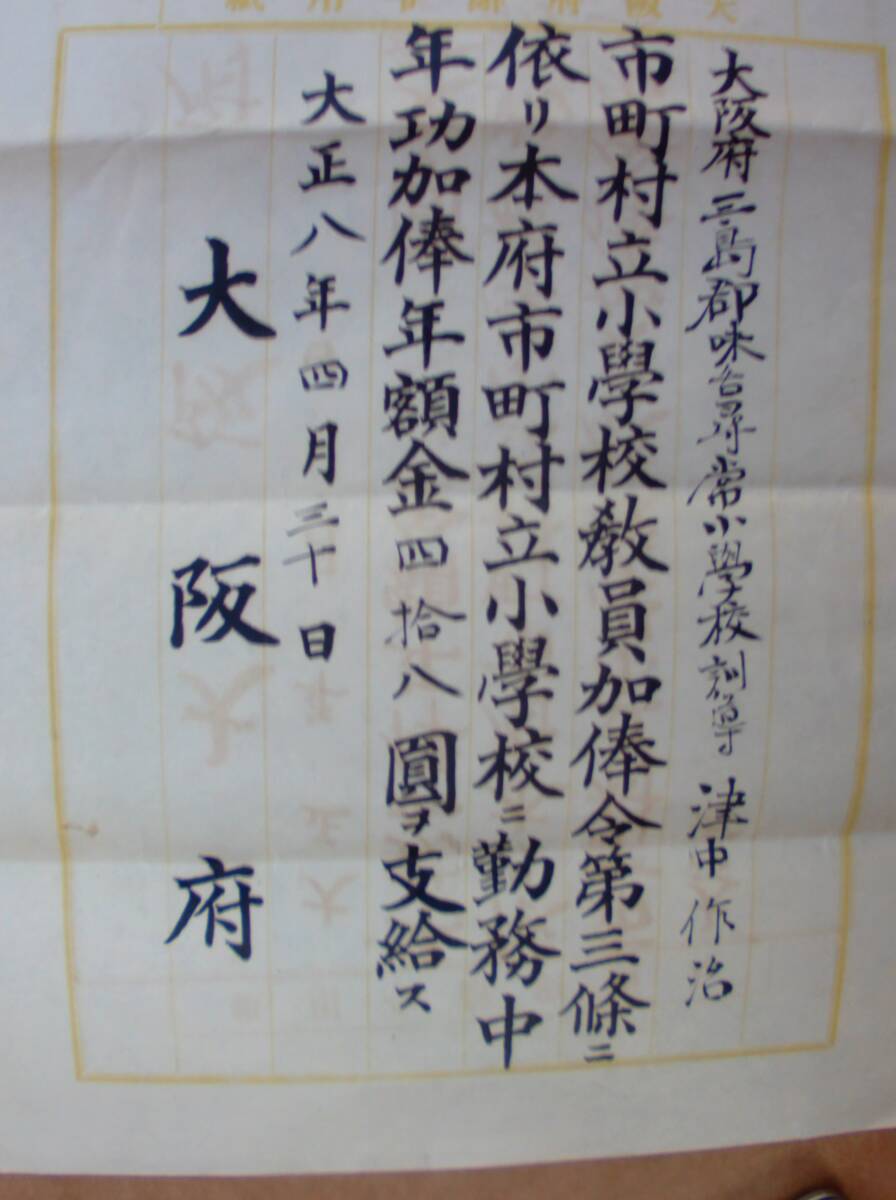 大阪府三島郡味舌尋常小學校訓導 津中作治
市町村立小學校教員加俸令第三條ニ
依リ本府市町村立小學校ニ勤務中
年功加俸年額金四拾八圓ヲ支給ス
大正八年四月三十日
大阪府